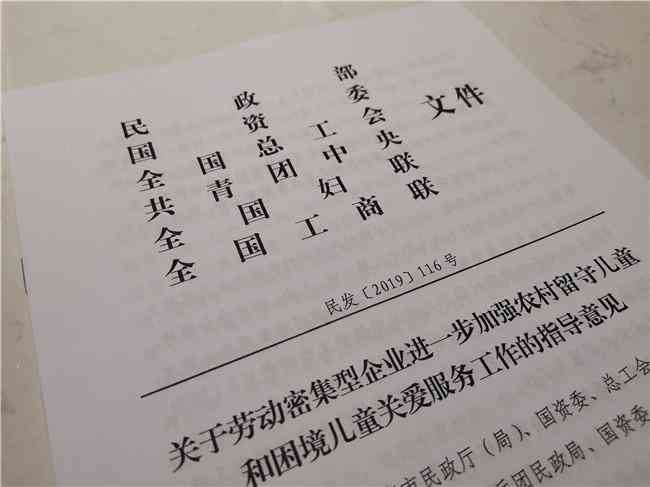 民政部
国资委
全国总工会
共青团中央
全国妇联
全国工商联
文件
民发〔2019〕116号
关于劳动密集型企业进一步加强农村留守儿童
和困境儿童关爱服务工作的指导意见
市民政厅（局）、国资委、总工会
团民政局、国资委